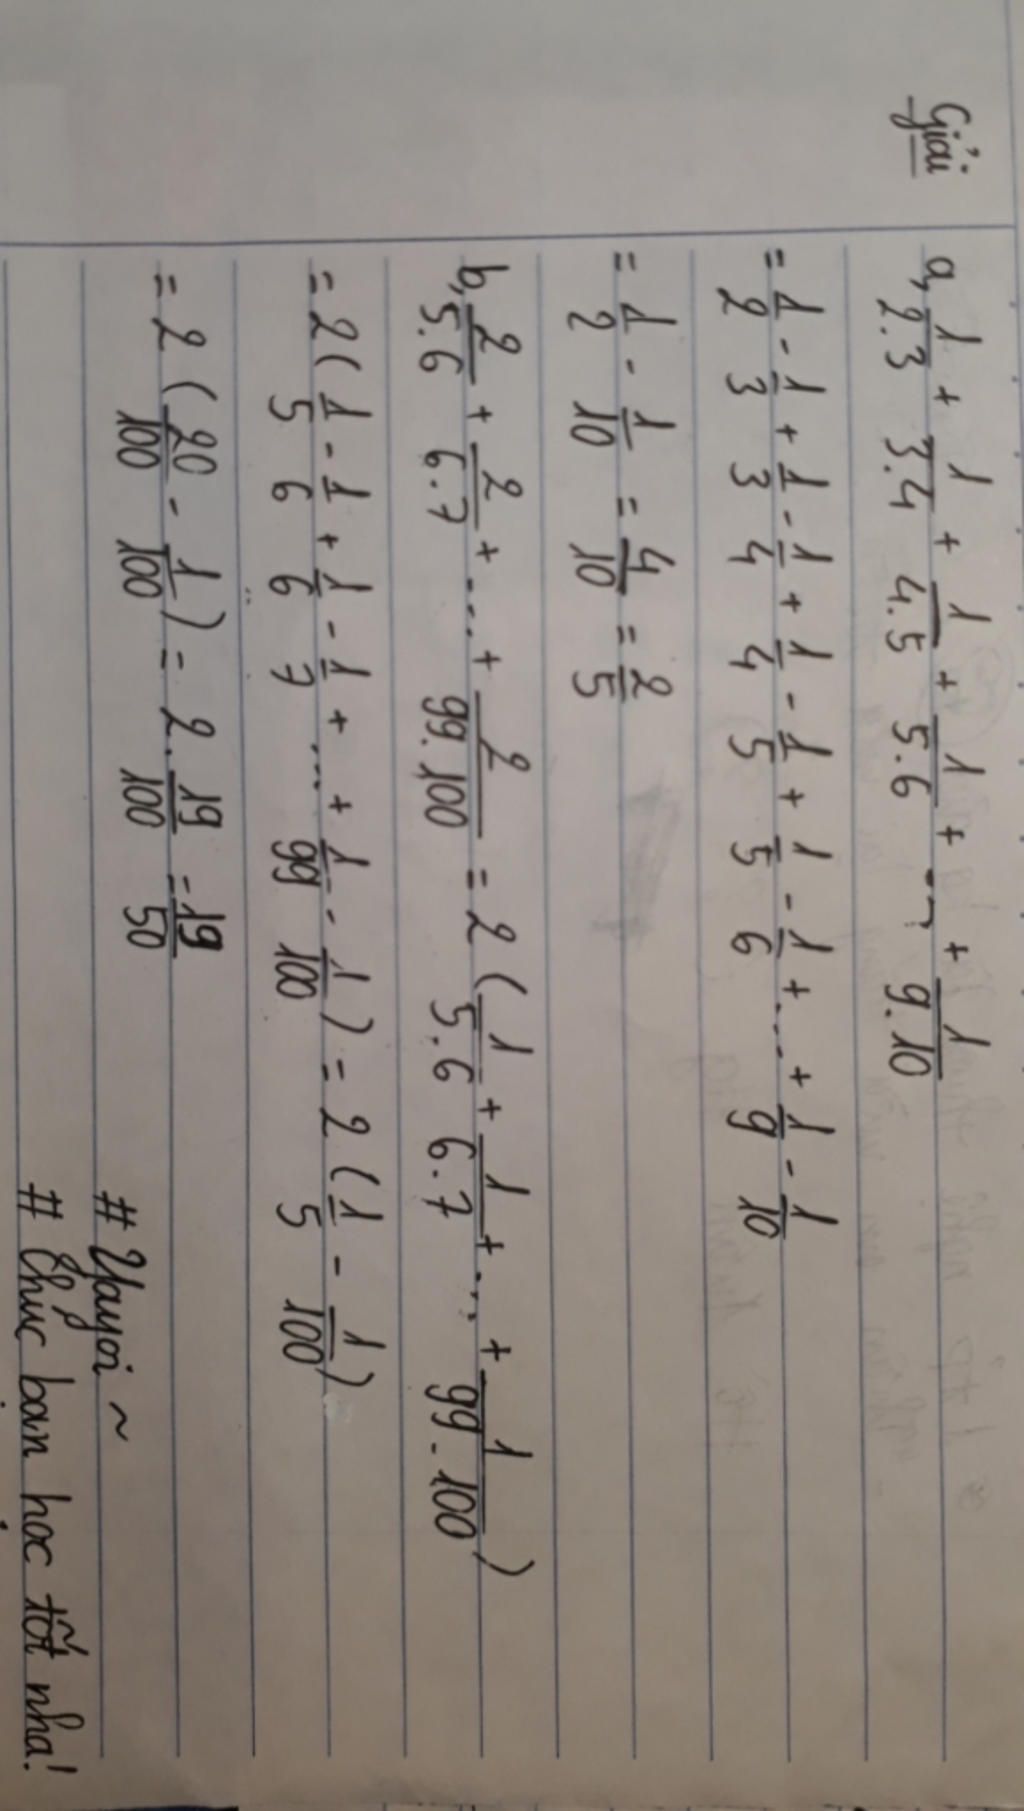 Giải
a, 1/2.3 + 1/3.4 + 1/4.5 + 1/5.6 + ... + 1/9.10
= 1/2 - 1/3 + 1/3 - 1/4 + 1/4 - 1/5 + 1/5 - 1/6 + ... + 1/9 - 1/10
= 1/2 - 1/10 = 4/10 = 2/5
b, 2/5.6 + 2/6.7 + ... + 2/99.100 = 2 (1/5.6 + 1/6.7 + ... + 1/99.100)
= 2 (1/5 - 1/6 + 1/6 - 1/7 + ... + 1/99 - 1/100) = 2 (1/5 - 1/100)
= 2 (20/100 - 1/100) = 2. 19/100 = 19/50
# Yayoi ~
# Chuc ban hoc tốt nha!